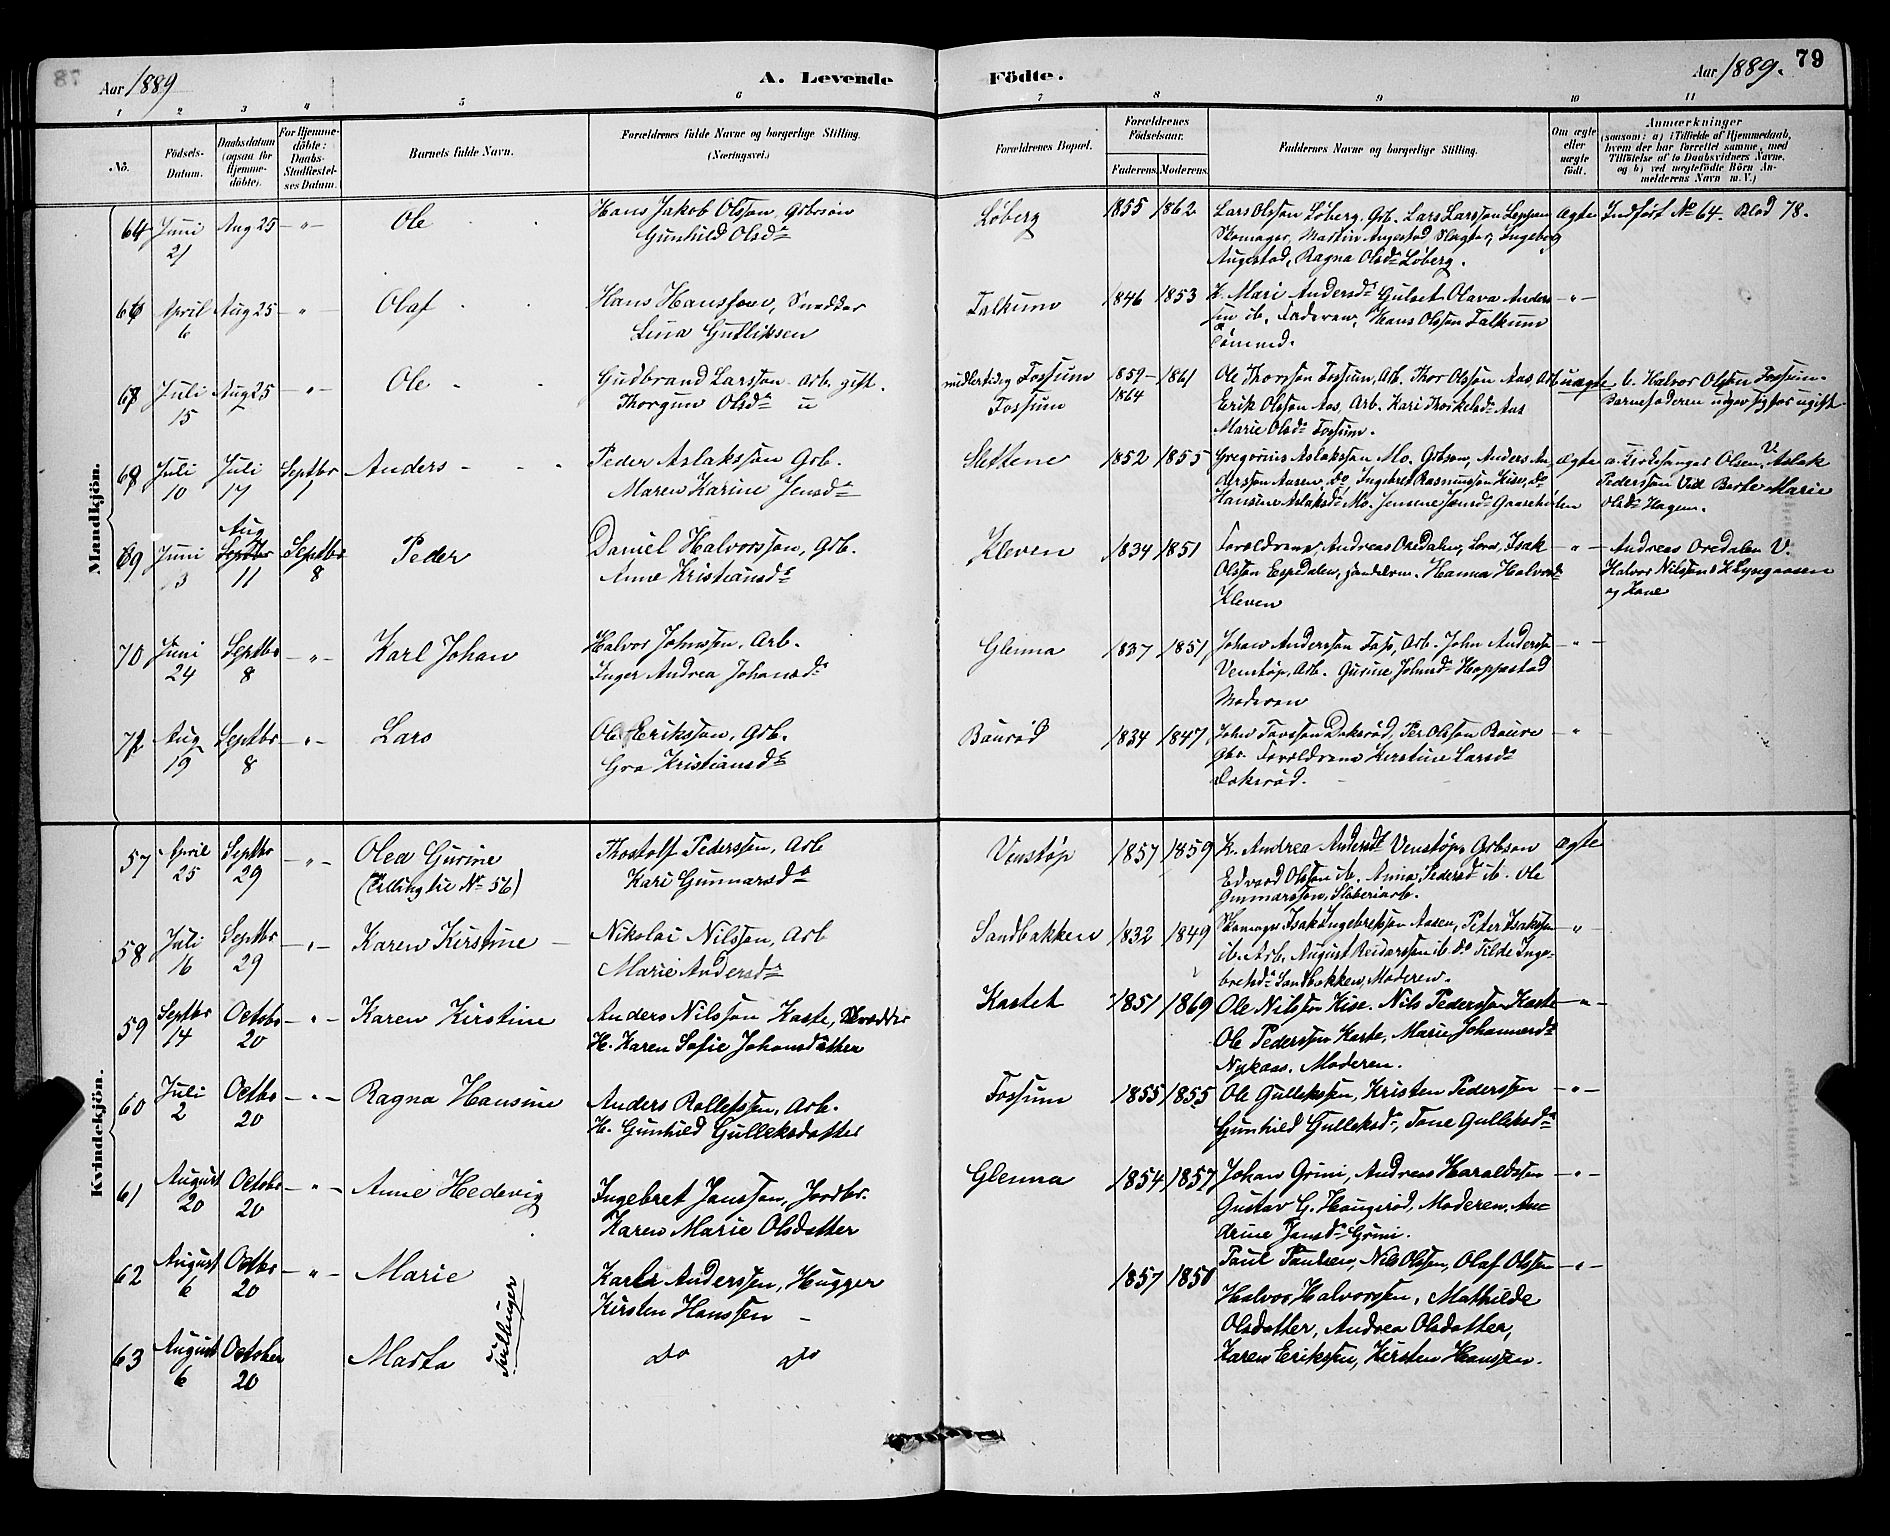 78
Aar 1889
A. Levende
Födte.
Aar 1889.
79
1 2 3 4 5 6 7 8 9 10 11
No.
Födsels-
Datum.
Daabsdatum
(ogsaa for
Hjemme-
döbte).
For Hjemme-
döbte:
Daabs-
Stadfæstel-
ses Datum.
Barnets fulde Navn.
Forældrenes fulde Navne og borgerlige Stilling.
(Næringsvei.)
Forældrenes Bopæl.
Forældrenes
Födselsaar.
Faderens. Moderens.
Faddernes Navne og borgerlige Stilling.
Om ægte
eller
uægte
født.
Anmærkninger
(saasom: a) i Tilfælde af Hjemmedaab,
hvem der har forrettet samme, med
Tilföielse af to Daabsvidners Navne,
og b) ved uægtefödte Börn An-
melderens Navn m. V.)
Mandkjön.
64 Juni 21 Aug 25 - " - Ole
Hans Jakob Olsson, Gbrsøn
Gunhild Olsdr
Løberg 1855 1862
Lars Olsson Løberg, Grb. Lars Larsson
Skomager, Martin Augestad Slagter, Ingeborg
Augestad, Ragna Olsdr Løberg.
ægte Indført No 64. Blad 78.
April 6 Aug 25 - " - Olaf
Hans Hansson, Snedker
Lina Gulliksen
Falkum 1846 1853
K. Mari Andersdr Gulset, Olava Ander-
sen ib. Faderen, Hans Olsson Falkum
Tømmed.
- " -
Juli 15 Aug 25 - " - Ole
Gudbrand Larsson Arb. gift.
Thorgun Olsdr u
midlertidig Fossum
Fossum
1859 - 1861
1864
Ole Thorsson Fossum, Arb. Thor Olsson Aas, Arb
Erik Olsson Aas, Arb. Kari Thorkelsdr Aas
Marie Olsdr Fossum.
uægte b. Halvor Olsen Fossum.
Barnefaderen udgav sig for ugift.
Juli 10 Juli 17 Septbr 1 Anders
Peder Aslaksson Grb.
Maren Karine Jensdr
Slettene 1852 1855
Gregorius Aslaksson Mo. Grbsøn, Anders An-
dersson Aasen, do Ingebret Rasmusson Kise, do
Hansine Aslaksdr Mo. Jensine Jensdr Gaaseholen
ægte a. Kirkesanger Olsen, V. Aslak
Pedersson Vid Berte Marie
Olsdr Hagen.
69 Juni 13 Aug 11 Septbr 8 Peder
Daniel Halvorsson, Grb.
Anne Kristiansdr
Kleven 1834 1851
Forældrene, Andreas Oredalen, Isak
Olsson Espedalen, Hanna Halvorsdr
Kleven
- " - Andreas Oredalen V.
Halvor Nilsson Lyngaasen
og Kone
70 Juni 24 Septbr 8 - " - Karl Johan
Halvor Johnssen, Arb.
Inger Andrea Johansdr
Glenna 1837 1851
Johan Andersson Fos, Arb. John Anderssen
Venstøp, Arb. Gurine Johnsdr Hoppestad
Moderen
- " -
Aug 19 Septbr 8 - " - Lars
Ole Eriksson, Grb.
Gro Kristiansdr
Baurød 1834 1847
John Torsson Dokrød, Per Olsson Baurø
gbr. Forældrene Kirstine Larsdr
Dokrød.
- " -
Kvindekjön.
57 April 25 Septbr 29 - " - Olea Gurine
(Tvilling til No 56)
Thostolf Pederssen, Arb
Kari Gunnarsdr
Venstøp 1857 1859
K. Andrea Andersdr Venstøp, Grbson
Edvard Olsson ib. Anna Pedersdr ib. Ole
Gunnarsson, Sliberiarb.
ægte
58 Juli 16 Septbr 29 - " - Karen Kirstine
Nikolai Nilsson, Arb
Marie Andersdr
Sandbakken 1832 1849
Skomager Isak Ingebretsen Aasen, Peter Isaksen
ib. Arb. August Reiersson ib do Tilde Inge-
bretsdr Sandbakken, Moderen.
- " -
59 Septbr 14 Octobr 20 - " - Karen Kirstine
Anders Nilsson Kaste, Skrædder
H. Karen Sofie Johansdatter
Kastet 1851 1869
Ole Nilsson Kise. Nils Pedersson Kaste
Ole Pederssen Kaste, Marie Johannesdr
Nykaas. Moderen.
- " -
60 Juli 2 Octbr 20 - " - Ragna Hansine
Anders Rolleffsen, Arb.
H. Gunhild Gulleksdatter
Fossum 1855 1855
Ole Gullekssen, Kristen Pederssen
Gunhild Gulleksdr, Tone Gulleksdr
- " -
61 August 20 Octobr 20 - " - Anne Hedevig
Ingebret Janssen, Jordbr.
Karen Marie Olsdatter
Glenna 1854 1857
Johan Grini, Andreas Haraldssen
Gustav G. Haugerød, Moderen, An-
drine Jansdr Grini.
- " -
62 August 6 Octbr 20 - " - Marie
Karl Anderssen, Hugger
Kirsten Hanssen
1857 1850
Paul Paulsen, Nils Olssen, Olaf Olssen
Halvor Halvorssen, Mathilde
Olsdatter, Andrea Olsdatter,
Karen Eriksen, Kirsten Hanssen.
- " -
Tvillinger
63 August 6 October 20 Marta
do do